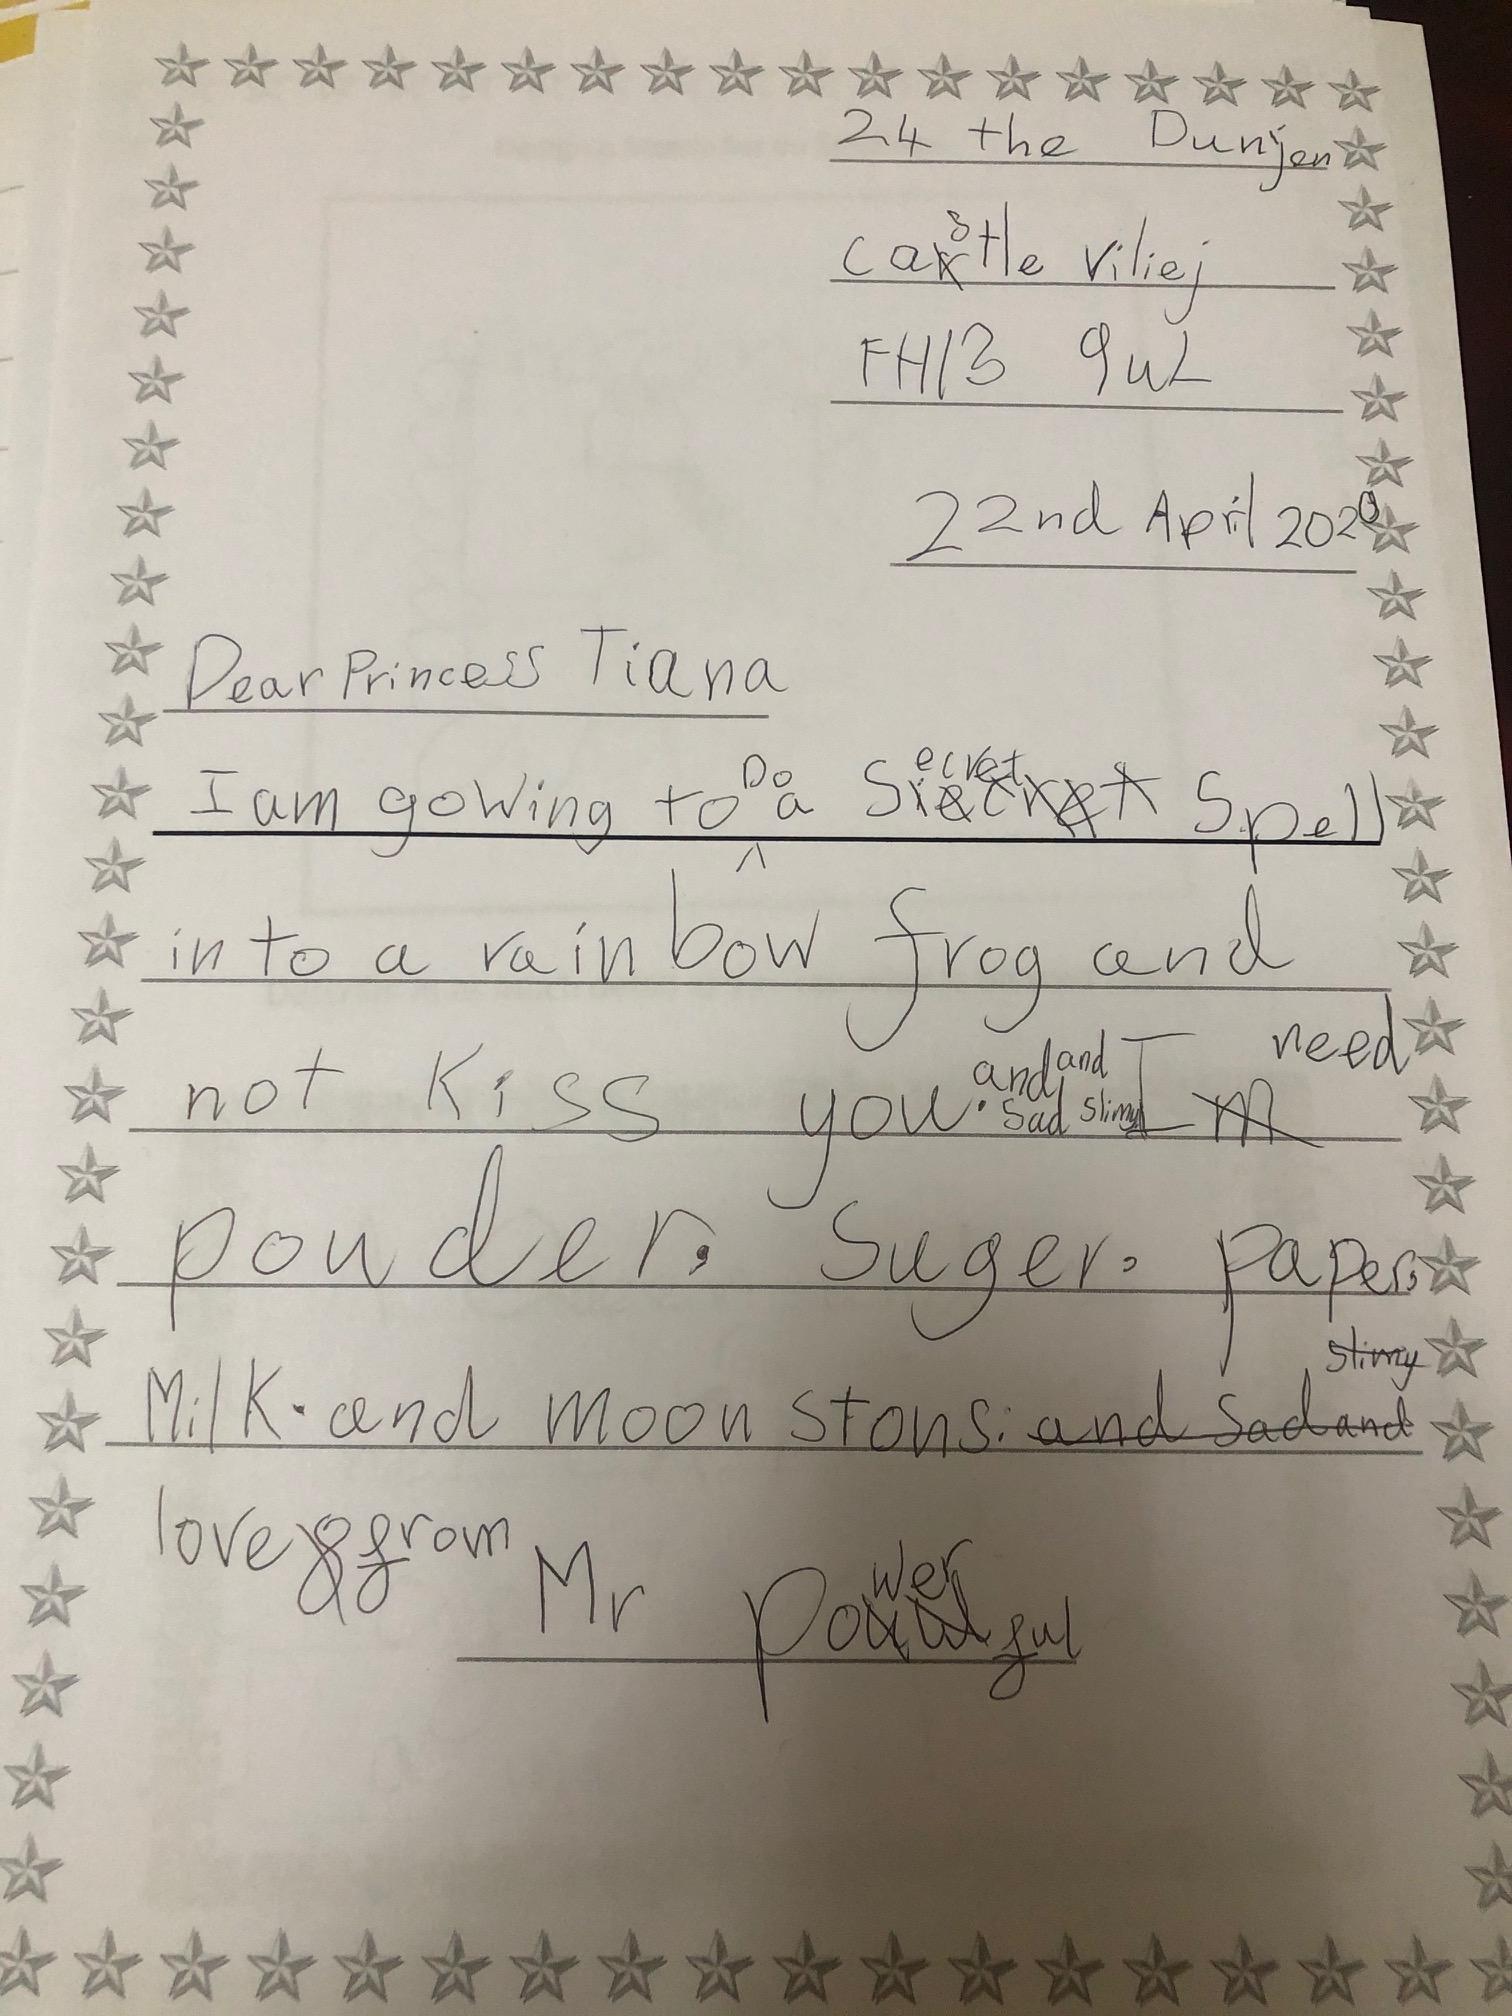 24 the Dunjen
castle viliej
FH13 9uL
22nd April 2020
Dear Princess Tiana
I am gowing to Do a Secret Spell
into a rainbow frog and
not Kiss you. and sad and slimy I need
pouder. Suger. papers
Milk. and moon stons. and sad and slimy
love from
Mr powerful